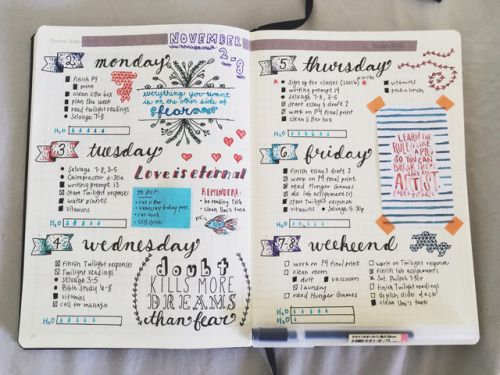 NOVEMBER
2-8
2
monday
finish P4
print
clean litter box
plan the week
read twilight readings
selvage 7-8
everything you want
is on the other side of
fear
H₂O
3
tuesday
Selvage 7-8, 3-5
Chiropractor 4:30
writing prompt 13
start Twilight response
water plants
Vitamins
Love is eternal
TO BUY:
cat litter
REMINDERS:
be reading Title
clean Uni's tank
H₂O
4
wednesday
finish Twilight response
Twilight readings
selvage 3-5
Bible Study 6-8
vitamins
call for massage
doubt
KILLS MORE
DREAMS
than fear
H₂O
5
thursday
Sign up for classes
writing prompt 14
selvage 7-8, 3-5
start essay 3 draft 2
work on P4 final
clean litter box
vitamins
pack a lunch
H₂O
LEARN THE
RULES LIKE
A PRO,
SO YOU CAN
BREAK THEM
LIKE AN
ARTIST.
PABLO PICASSO
6
friday
finish essay 3 draft 2
work on P4 final
read Hunger Games
do lab assignments
start Twilight response
vitamins
H₂O
7-8
weekend
work on P4 final
clean room
dust
vacuum
laundry
read Hunger Games
work on Twilight response
finish lab assignments
finish Twilight readings
clean Uni's tank
H₂O
H₂O